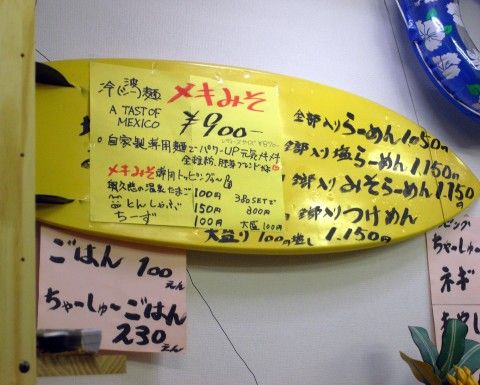 冷 波 麺
メキみそ
A TAST OF
MEXICO
¥900-
自家製専用麺でパワーUP元気バキバキ
全粒粉、胚芽ブレンド
メキみそ専用トッピング
奥久慈の温泉たまご 100円
とんしゃぶ 150円
ちーず 100円
3品SETで
300円
大盛 100円
全部入りらーめん 1.050円
全部入り塩らーめん 1.150円
全部入りみそらーめん 1.150円
全部入りつけめん
1.150円
大盛り 100円増し
ごはん 100えん
ちゃーしゅーごはん
230えん
ッピング
ちゃーしゅ
ネギ
もやし